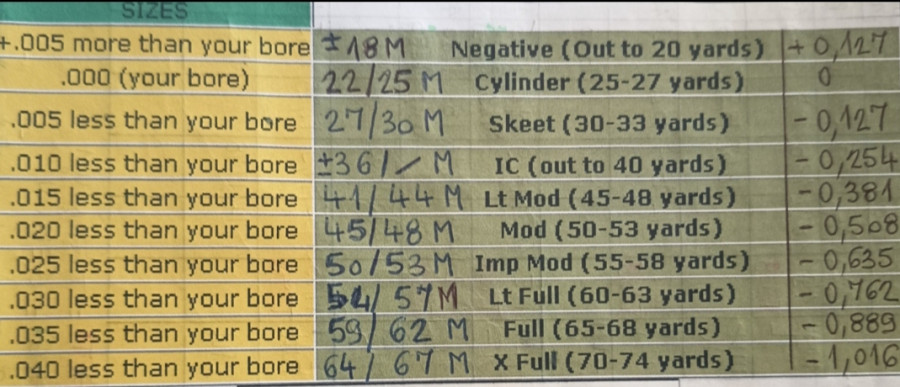 SIZES
+.005 more than your bore ±18M Negative (Out to 20 yards) + 0,127
.000 (your bore) 22/25 M Cylinder (25-27 yards) 0
.005 less than your bore 27/30 M Skeet (30-33 yards) - 0,127
.010 less than your bore ±36/- M IC (out to 40 yards) - 0,254
.015 less than your bore 41/44 M Lt Mod (45-48 yards) - 0,381
.020 less than your bore 45/48 M Mod (50-53 yards) - 0,508
.025 less than your bore 50/53 M Imp Mod (55-58 yards) - 0,635
.030 less than your bore 54/57M Lt Full (60-63 yards) - 0,762
.035 less than your bore 59/62 M Full (65-68 yards) - 0,889
.040 less than your bore 64/67 M X Full (70-74 yards) - 1,016